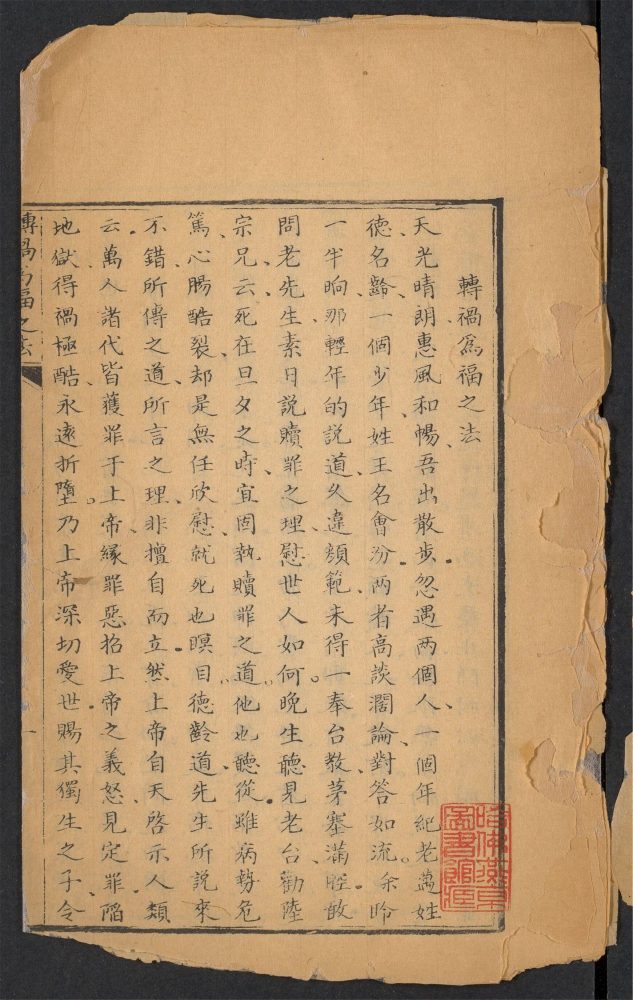 轉禍爲福之法
天光晴朗惠風和暢、吾出散步。忽遇两個人、一個年紀老邁、姓
德名齡、一個少年姓王名會汾。两者高談濶論、對答如流。余聆
一半晌、那輕年的說道、久違顏範、未得一奉台教、茅塞滿腔、敢
問老先生素日說贖罪之理、慰世人如何。晚生聽見老台勸陸
宗兄云、死在旦夕之時、宜固執贖罪之道。他也聽從。雖病勢危
篤、心腸酷裂、却是無任欣慰、就死也暝目。德齡道、先生所說來
不錯、所傳之道、所言之理、非擅自而立。然上帝自天啓示人類
云、萬人諸代皆獲罪于上帝、縁罪惡招上帝之義怒、見定罪陷
地獄、得禍極酷、永遠折墮。乃上帝深切愛世、賜其獨生之子、令
轉禍爲福之法
一